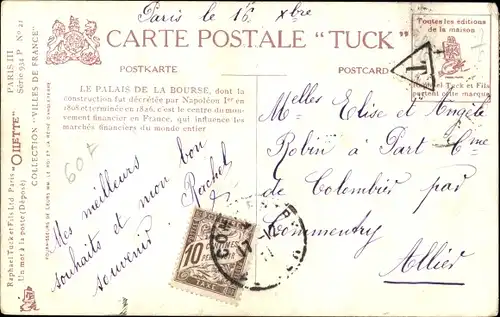 Paris le 16 Xbre
CARTE POSTALE "TUCK"
POSTKARTE
POSTCARD
Toutes les éditions
de la maison
Raphael Tuck et Fils
portent cette marque
T
PARIS III
Série 934 P No 21
COLLECTION "VILLES DE FRANCE"
"OILETTE"
Raphael Tuck et Fils Ltd. Paris
Un mot à la poste (Déposé)
LE PALAIS DE LA BOURSE, dont la
construction fut décrétée par Napoléon Ier en
1808 et terminée en 1826, c'est le centre du mou-
vement financier en France, qui influence les
marchés financiers du monde entier
60F
Mes meilleurs
souhaits et mon bon
souvenir
Rachel
Melles Elise et Angèle
Robin à Part Cne
de Colombier par
Commentry
Allier
10 CENTIMES
TAXE